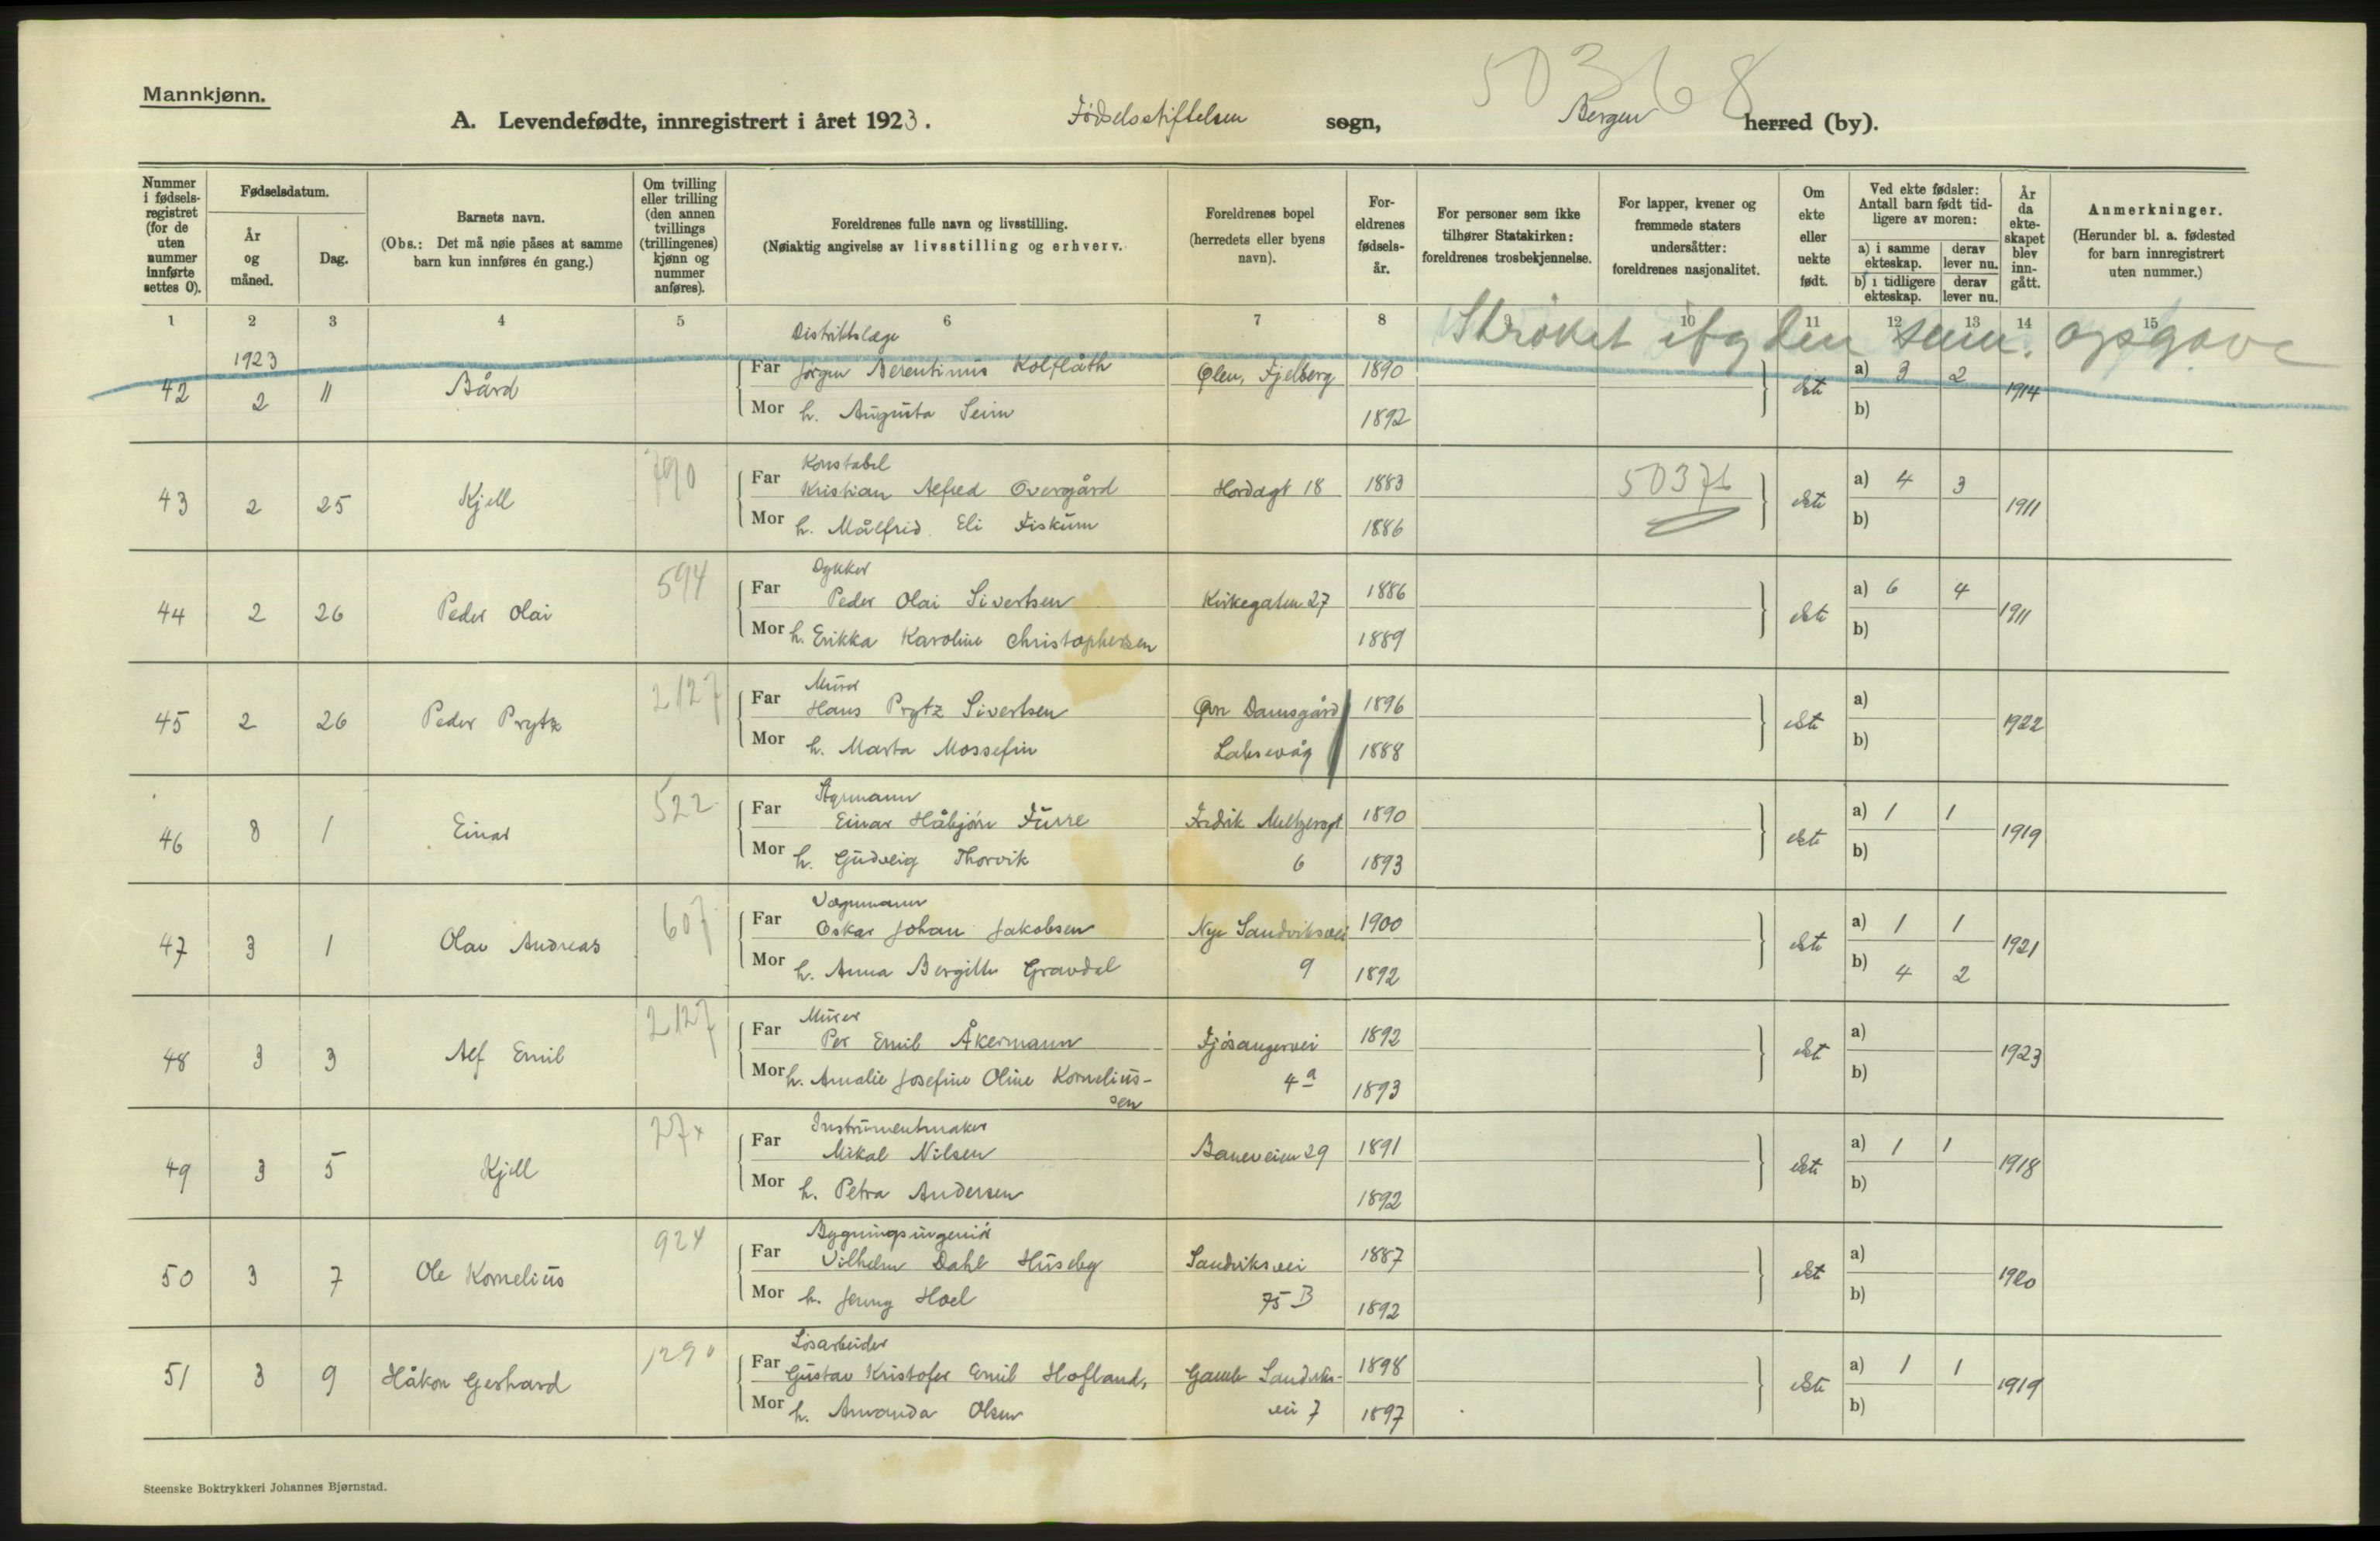 50368
Mannkjønn.
A. Levendefødte, innregistrert i året 1923. Fødselsstiftelsen sogn, Bergen herred (by).
Nummer i fødsels-registret (for de uten nummer innførte settes 0).
Fødselsdatum.
År og måned.
Dag.
Barnets navn.
(Obs.: Det må nøie påses at samme barn kun innføres én gang.)
Om tvilling eller trilling (den annen tvillings (trillingenes) kjønn og nummer anføres).
Foreldrenes fulle navn og livsstilling.
(Nøiaktig angivelse av livsstilling og erhverv.
Foreldrenes bopel (herredets eller byens navn).
For-eldrenes fødsels-år.
For personer som ikke tilhører Statskirken: foreldrenes trosbekjennelse.
For lapper, kvener og fremmede staters undersåtter: foreldrenes nasjonalitet.
Om ekte eller uekte født.
Ved ekte fødsler: Antall barn født tid-ligere av moren:
a) i samme ekteskap. derav lever nu.
b) i tidligere ekteskap. derav lever nu.
År da ekte-skapet blev inn-gått.
Anmerkninger.
(Herunder bl. a. fødested for barn innregistrert uten nummer.)
1 2 3 4 5 6 7 8 9 10 11 12 13 14 15
Strøket ifg den sum. opsgave
1923 Distriktslæge
42 2 11 Bård Far Jørgen Berentinus Kolflåth Ølen, Fjelberg 1890 ekte a) 3 2 1914
Mor h. Augusta Seim 1892 b)
790 Konstabel
43 2 25 Kjell Far Kristian Alfred Overgård Hordagt 18 1883 50371 ekte a) 4 3 1911
Mor h. Målfrid Eli Fiskum 1886 b)
594 Dykker
44 2 26 Peder Olai Far Peder Olai Sivertsen Kirkegaten 27 1886 ekte a) 6 4 1911
Mor h. Erikka Karoline Christophersen 1889 b)
2127 Murer
45 2 26 Peder Prytz Far Hans Prytz Sivertsen Øvre Damsgård 1896 ekte a) 1922
Mor h. Marta Mossefin Laksevåg 1888 b)
522 Styrmann
46 8 1 Einar Far Einar Håbjørn Furre Fredrik Meltzersgt 1890 ekte a) 1 1 1919
Mor h. Gudveig Thorvik 6 1893 b)
607 Vognmann
47 3 1 Olav Andreas Far Oskar Johan Jakobsen Nye Sandviksvei 1900 ekte a) 1 1 1921
Mor h. Anna Bergitte Gravdal 9 1892 b) 4 2
2127 Murer
48 3 3 Alf Emil Far Per Emil Åkermann Fjøsangervei 1892 ekte a) 1923
Mor h. Amalie Josefine Oline Kornelius- 4 a 1893 b)
sen
27 x Instrumentmaker
49 3 5 Kjell Far Mikal Nilsen Baneveien 29 1891 ekte a) 1 1 1918
Mor h. Petra Andersen 1892 b)
924 Bygningsingeniør
50 3 7 Ole Kornelius Far Vilhelm Dahl Huseby Sandviksvei 1887 ekte a) 1920
Mor h. Jenny Hoel 75 B 1892 b)
1290 Løsarbeider
51 3 9 Håkon Gerhard Far Gustav Kristofer Emil Hofland, Gamle Sandviks- 1898 ekte a) 1 1 1919
Mor h. Amanda Olsen vei 7 1897 b)
Steenske Boktrykkeri Johannes Bjørnstad.